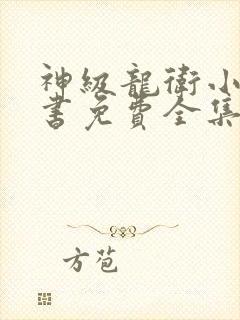 神級龍衛小
書免費全集
方苞